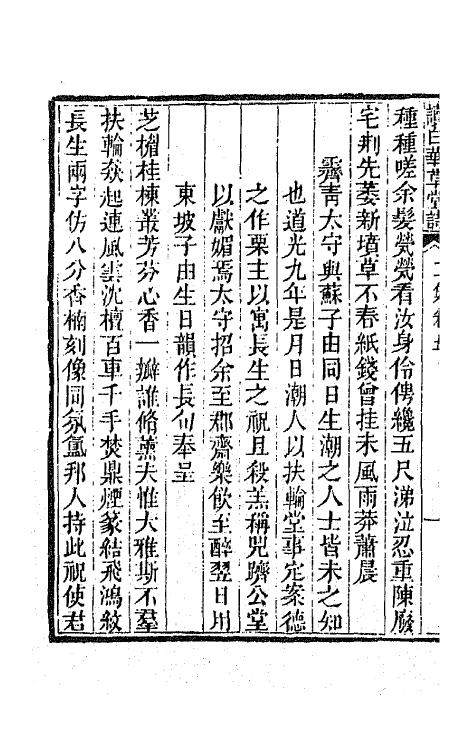 種種嗟余髮煢煢看汝身伶俜纔五尺涕泣忍重陳廢
宅荆先萎新墳草不春紙錢曾挂未風雨莽蕭晨
霽青太守與蘇子由同日生潮之人士皆未之知
也道光九年是月日潮人以扶輪堂事定案德
之作栗主以寓長生之祝且殺羔稱兕躋公堂
以獻媚焉太守招余至郡齋樂飲至醉翌日用
東坡子由生日韻作長句奉呈
芝楣桂棟叢芳芬心香一瓣誰脩薰夫惟大雅斯不羣
扶輪欻起連風雲沈檀百車千手焚鼎煙篆結飛鴻紋
長生兩字仿八分香楠刻像同氛氳邦人持此祝使君